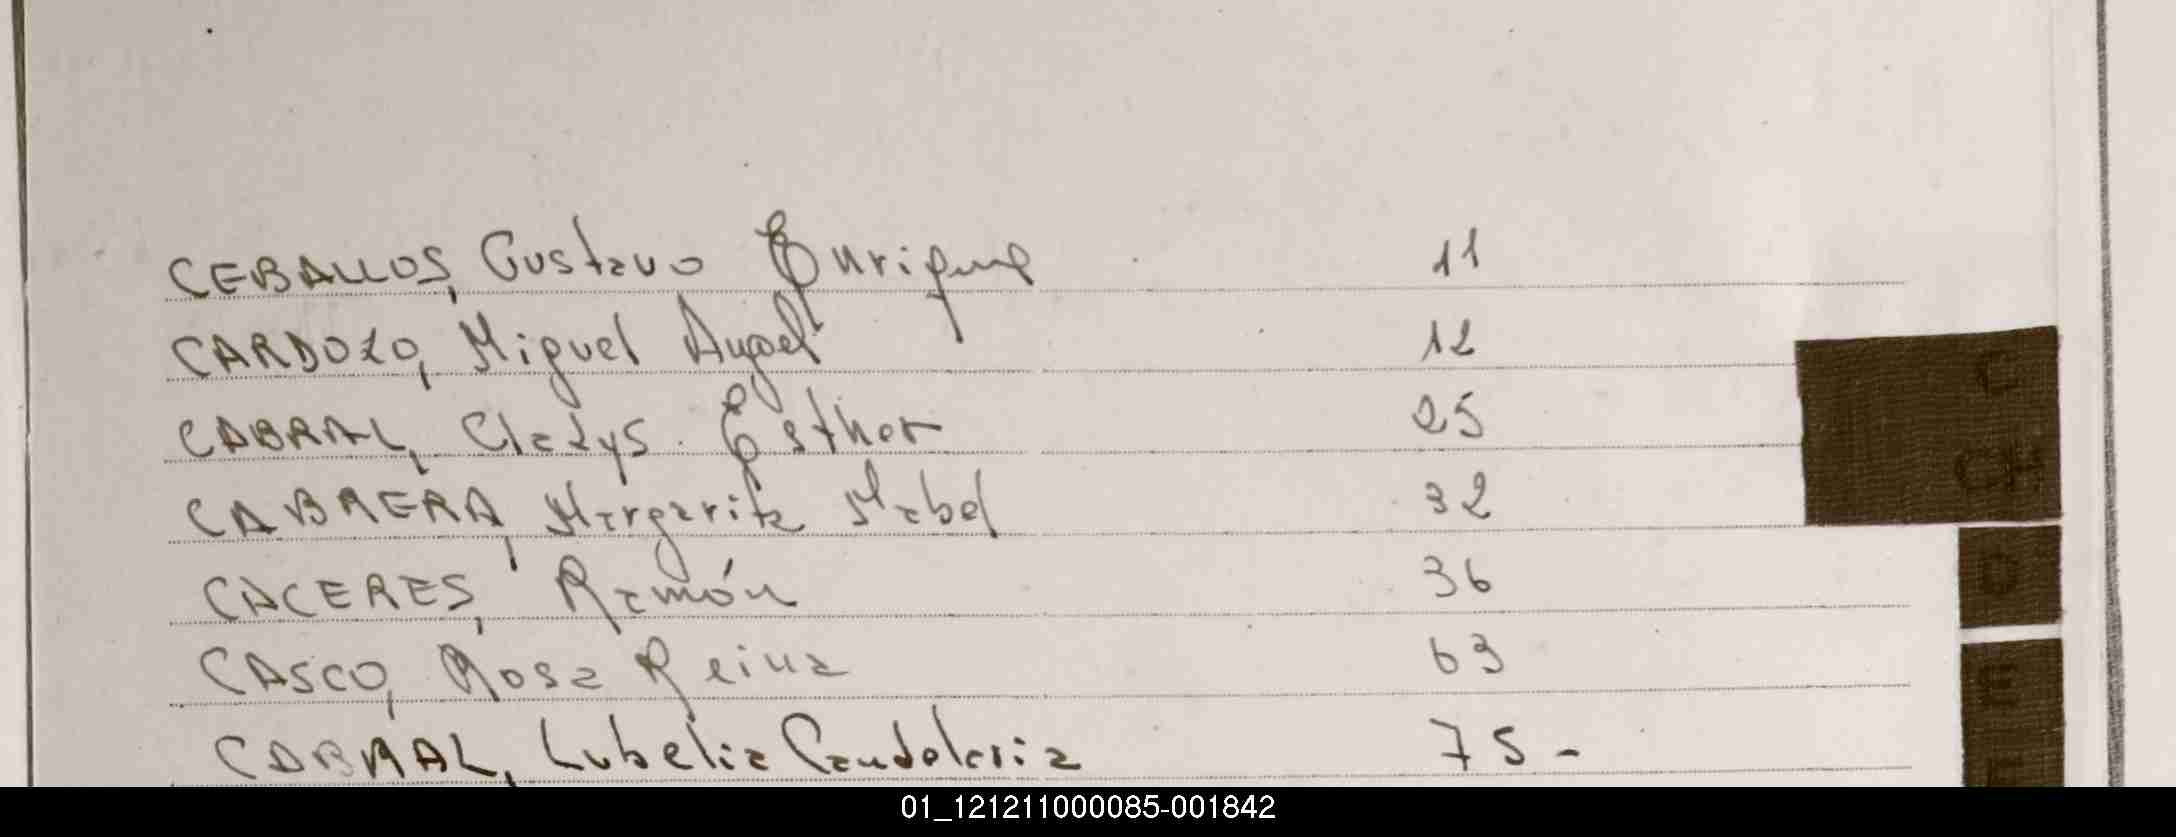 CEBALLOS, Gustavo Enrique 11
CARDOZO, Miguel Angel 12
CABRAL, Cladys Esther 25
CABRERA, Margarita Mabel 32
CACERES, Ramón 36
CASCO, Rosa Reina 63
CABRAL, Lubelia Candelaria 75-
C
CH
D
E
F
01_121211000085-001842